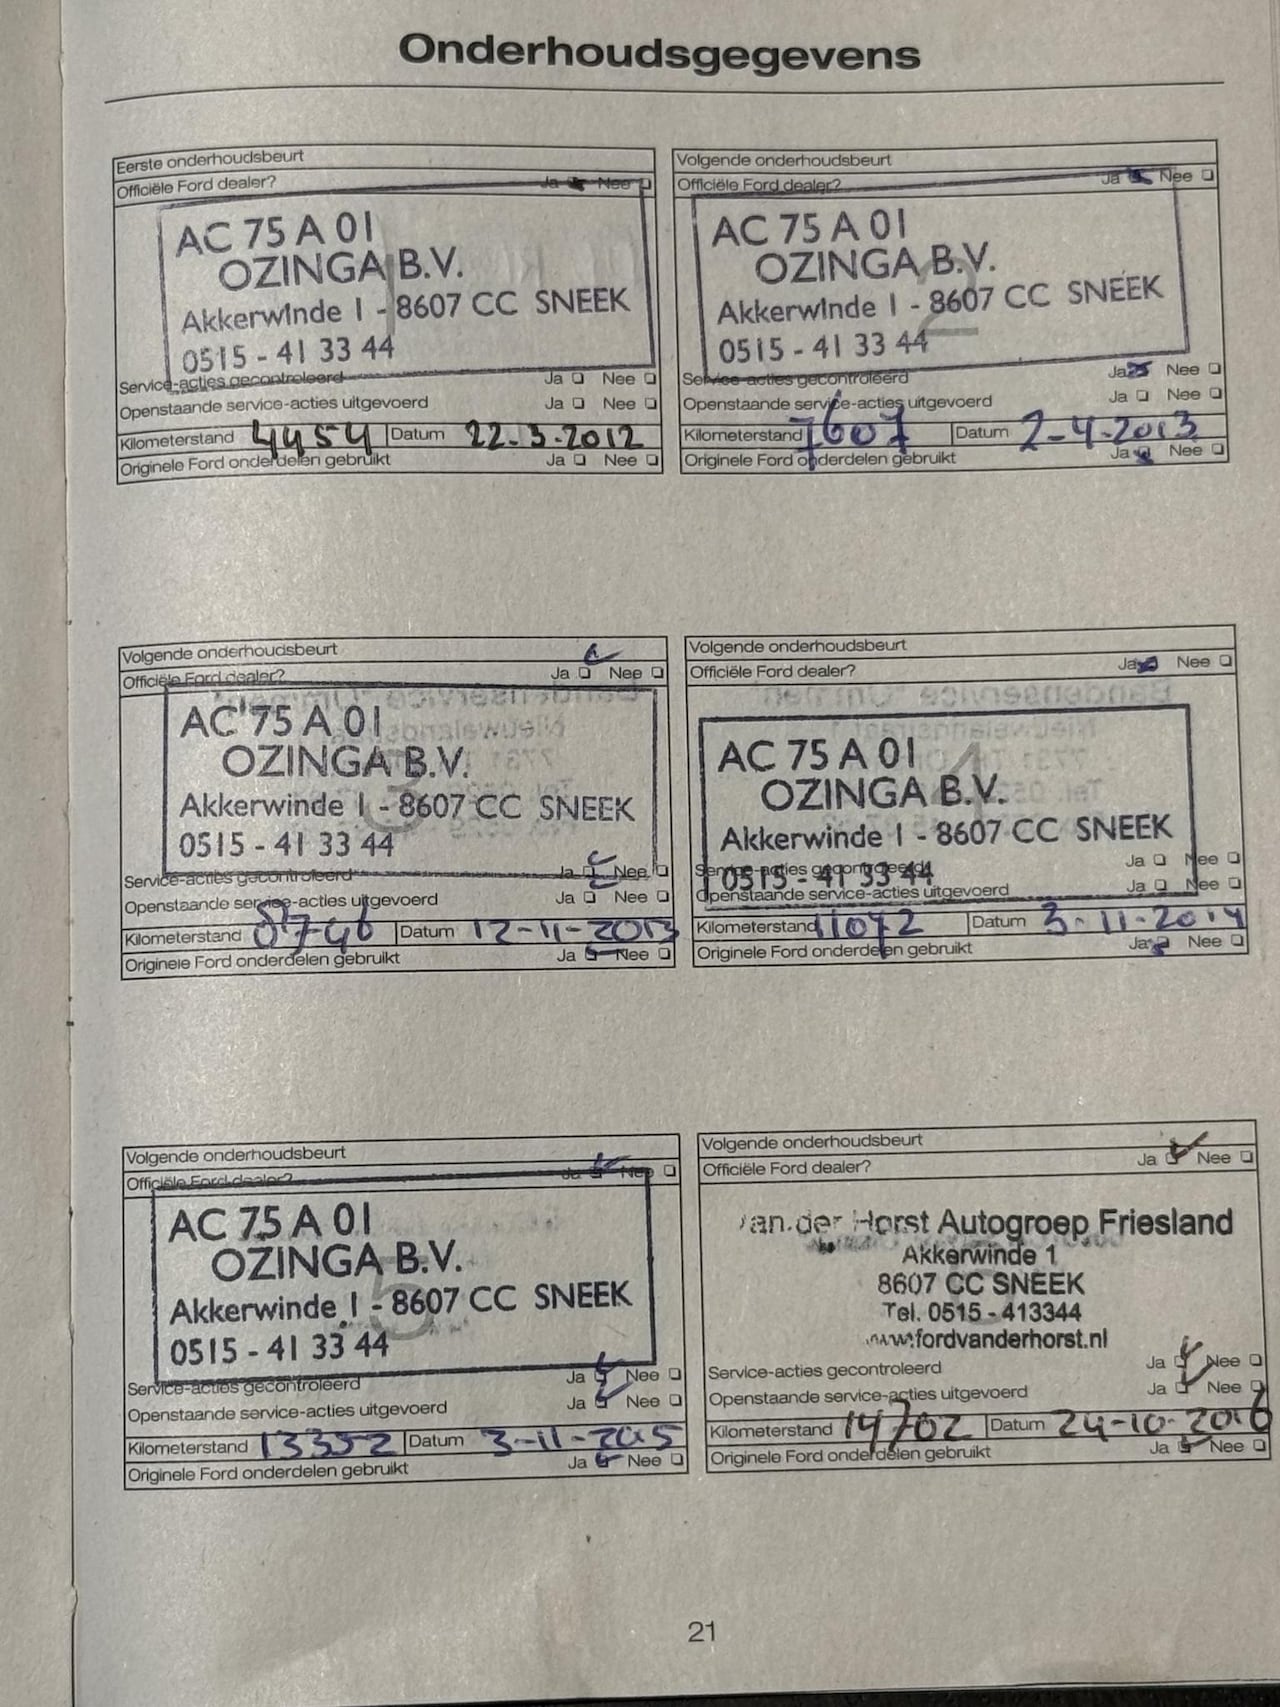 Onderhoudsgegevens
Eerste onderhoudsbeurt
Officiële Ford dealer? Ja Nee
AC 75 A 01
OZINGA B.V.
Akkerwinde 1 - 8607 CC SNEEK
0515 - 41 33 44
Service-acties gecontroleerd Ja Nee
Openstaande service-acties uitgevoerd Ja Nee
Kilometerstand 4454 Datum 22-3-2012
Originele Ford onderdelen gebruikt Ja Nee
Volgende onderhoudsbeurt
Officiële Ford dealer? Ja Nee
AC 75 A 01
OZINGA B.V.
Akkerwinde 1 - 8607 CC SNEEK
0515 - 41 33 44
2
Service-acties gecontroleerd Ja Nee
Openstaande service-acties uitgevoerd Ja Nee
Kilometerstand 7607 Datum 2-4-2013
Originele Ford onderdelen gebruikt Ja Nee
Volgende onderhoudsbeurt
Officiële Ford dealer? Ja Nee
AC 75 A 01
OZINGA B.V.
Akkerwinde 1 - 8607 CC SNEEK
0515 - 41 33 44
3
Service-acties gecontroleerd Ja Nee
Openstaande service-acties uitgevoerd Ja Nee
Kilometerstand 8746 Datum 12-11-2013
Originele Ford onderdelen gebruikt Ja Nee
Volgende onderhoudsbeurt
Officiële Ford dealer? Ja Nee
AC 75 A 01
OZINGA B.V.
Akkerwinde 1 - 8607 CC SNEEK
0515 - 41 33 44
4
Service-acties gecontroleerd Ja Nee
Openstaande service-acties uitgevoerd Ja Nee
Kilometerstand 11072 Datum 3-11-2014
Originele Ford onderdelen gebruikt Ja Nee
Volgende onderhoudsbeurt
Officiële Ford dealer? Ja Nee
AC 75 A 01
OZINGA B.V.
Akkerwinde 1 - 8607 CC SNEEK
0515 - 41 33 44
5
Service-acties gecontroleerd Ja Nee
Openstaande service-acties uitgevoerd Ja Nee
Kilometerstand 13352 Datum 3-11-2015
Originele Ford onderdelen gebruikt Ja Nee
Volgende onderhoudsbeurt
Officiële Ford dealer? Ja Nee
van der Horst Autogroep Friesland
Akkerwinde 1
8607 CC SNEEK
Tel. 0515 - 413344
www.fordvanderhorst.nl
Service-acties gecontroleerd Ja Nee
Openstaande service-acties uitgevoerd Ja Nee
Kilometerstand 14702 Datum 24-10-2016
Originele Ford onderdelen gebruikt Ja Nee
21